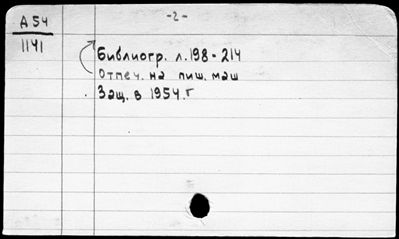 Д 54
1141
-2-
Библиогр. л. 198-214
Отпеч. на пиш. маш
Защ. в 1954.г